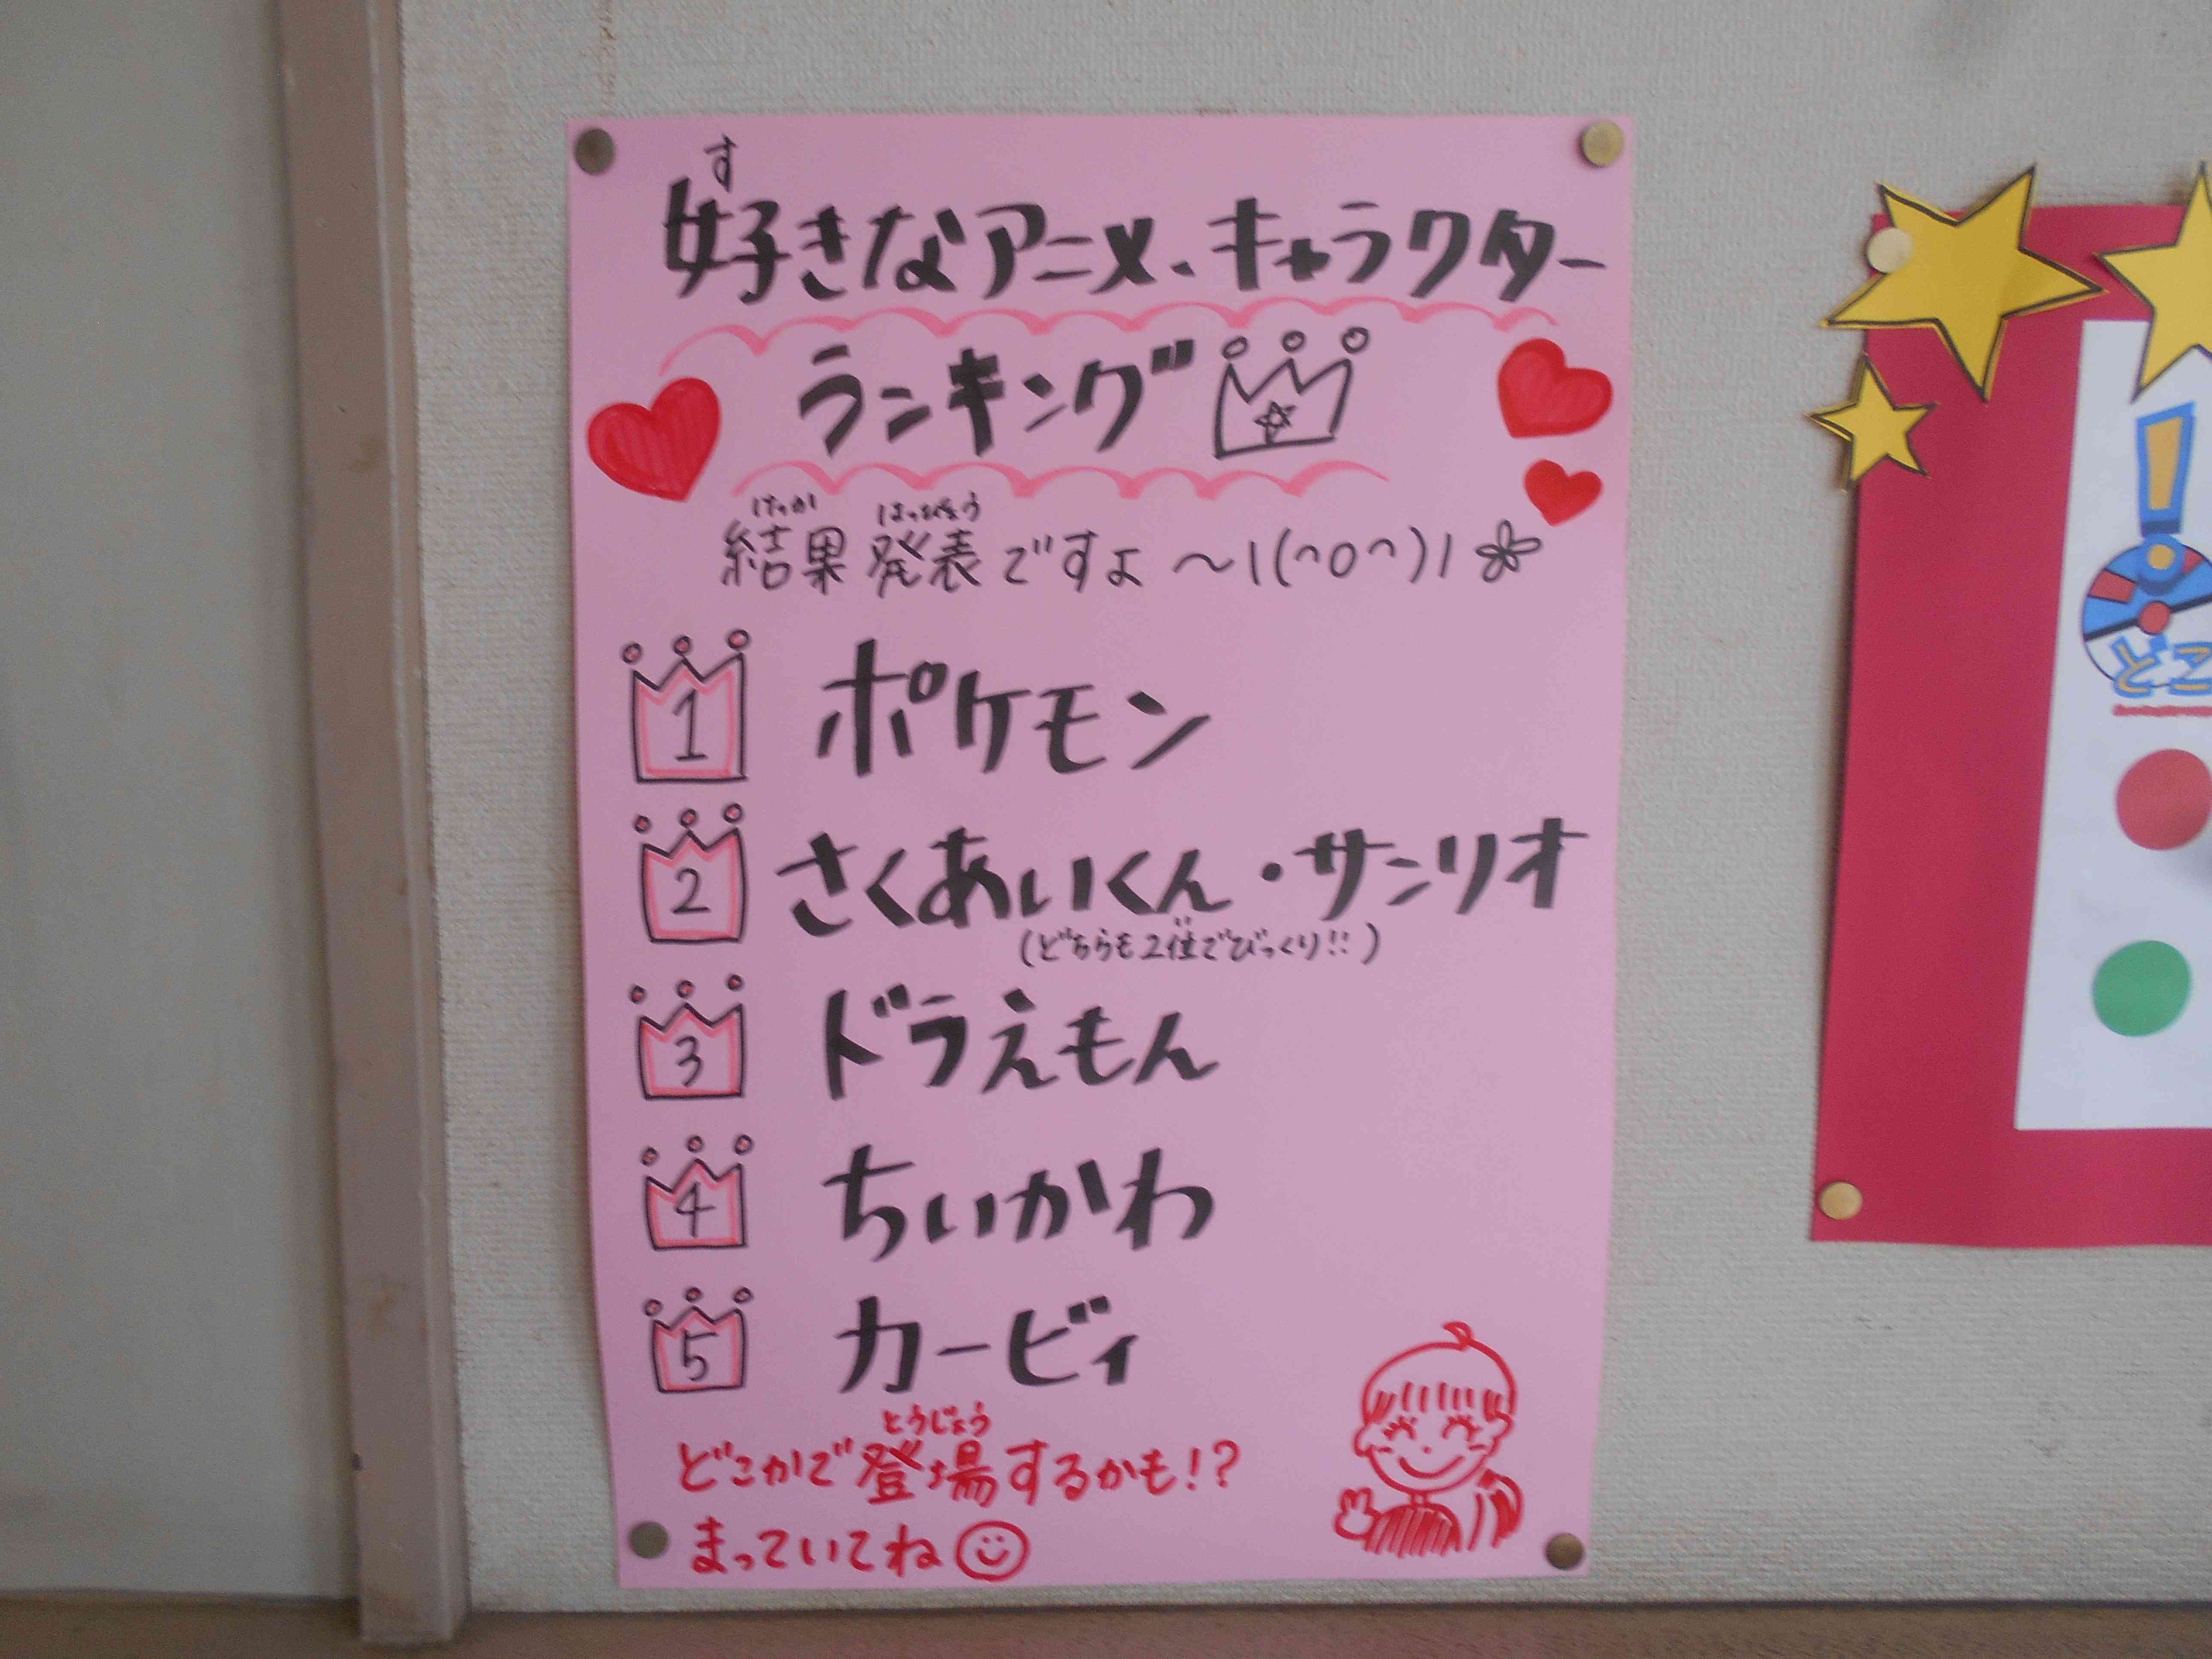 す
好きなアニメ、キャラクター
ランキング
けっか はっぴょう
結果 発表ですよ〜\(^o^)/
1 ポケモン
2 さくあいくん・サンリオ
(どちらも2位でびっくり!!)
3 ドラえもん
4 ちいかわ
5 カービィ
とうじょう
どこかで登場するかも!?
まっていてね
どこ